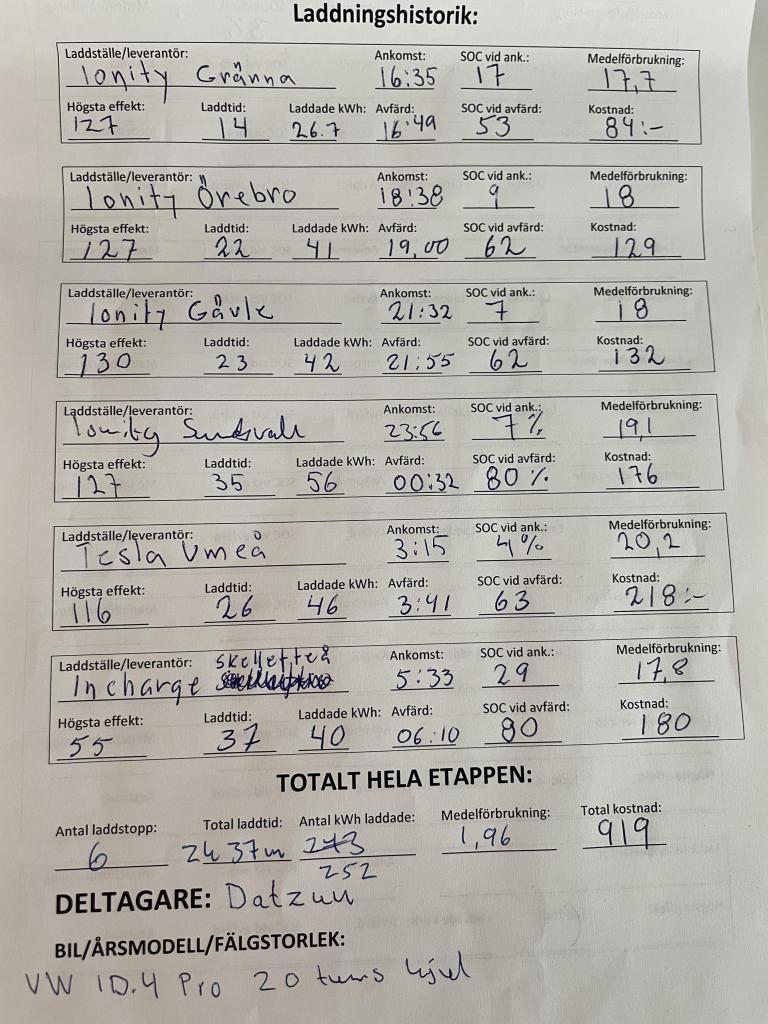 Laddningshistorik:
Laddställe/leverantör: Ankomst: SOC vid ank.: Medelförbrukning:
Ionity Gränna 16:35 17 17,7
Högsta effekt: Laddtid: Laddade kWh: Avfärd: SOC vid avfärd: Kostnad:
127 14 26.7 16:49 53 84:-
Laddställe/leverantör: Ankomst: SOC vid ank.: Medelförbrukning:
Ionity Örebro 18:38 9 18
Högsta effekt: Laddtid: Laddade kWh: Avfärd: SOC vid avfärd: Kostnad:
127 22 41 19,00 62 129
Laddställe/leverantör: Ankomst: SOC vid ank.: Medelförbrukning:
Ionity Gävle 21:32 7 18
Högsta effekt: Laddtid: Laddade kWh: Avfärd: SOC vid avfärd: Kostnad:
130 23 42 21:55 62 132
Laddställe/leverantör: Ankomst: SOC vid ank.: Medelförbrukning:
Ionity Sundsvall 23:56 7% 19,1
Högsta effekt: Laddtid: Laddade kWh: Avfärd: SOC vid avfärd: Kostnad:
127 35 56 00:32 80% 176
Laddställe/leverantör: Ankomst: SOC vid ank.: Medelförbrukning:
Tesla Umeå 3:15 4% 20,2
Högsta effekt: Laddtid: Laddade kWh: Avfärd: SOC vid avfärd: Kostnad:
116 26 46 3:41 63 218:-
Laddställe/leverantör: Ankomst: SOC vid ank.: Medelförbrukning:
Incharge skellefteå 5:33 29 17,8
Högsta effekt: Laddtid: Laddade kWh: Avfärd: SOC vid avfärd: Kostnad:
55 37 40 06:10 80 180
TOTALT HELA ETAPPEN:
Antal laddstopp: Total laddtid: Antal kWh laddade: Medelförbrukning: Total kostnad:
6 2h 37m 252 1,96 919
DELTAGARE: Datzun
BIL/ÅRSMODELL/FÄLGSTORLEK:
VW ID.4 Pro 20 tums hjul